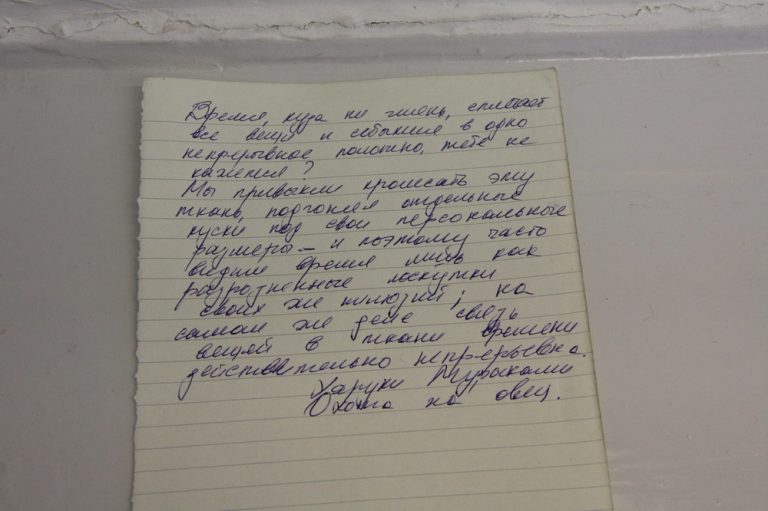 Время, куда ни глянь, сплетает
все вещи и события в одно
непрерывное полотно, тебе не
кажется?
Мы привыкли кромсать эту
ткань, подгоняя отдельные
куски под свои персональные
размеры – и поэтому часто
видим время лишь как
разрозненные лоскутки
своих же иллюзий; на
самом же деле связь
вещей в ткани времени
действительно непрерывна.
Харуки Мураками
Охота на овец.